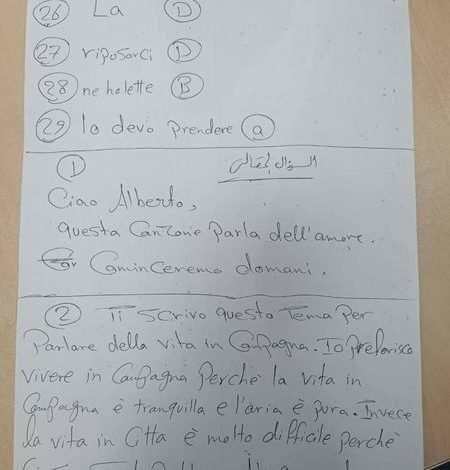 26 La D
27 riposarci D
28 ne ho lette B
29 lo devo prendere a
1 السؤال المقالى
Ciao Alberto,
questa Canzone Parla dell'amore.
Cominceremo domani.
2 Ti scrivo questo Tema Per
Parlare della vita in Campagna. Io preferisco
vivere in Campagna Perchè la vita in
Campagna è tranquilla e l'aria è pura. Invece
la vita in Città è molto difficile perchè